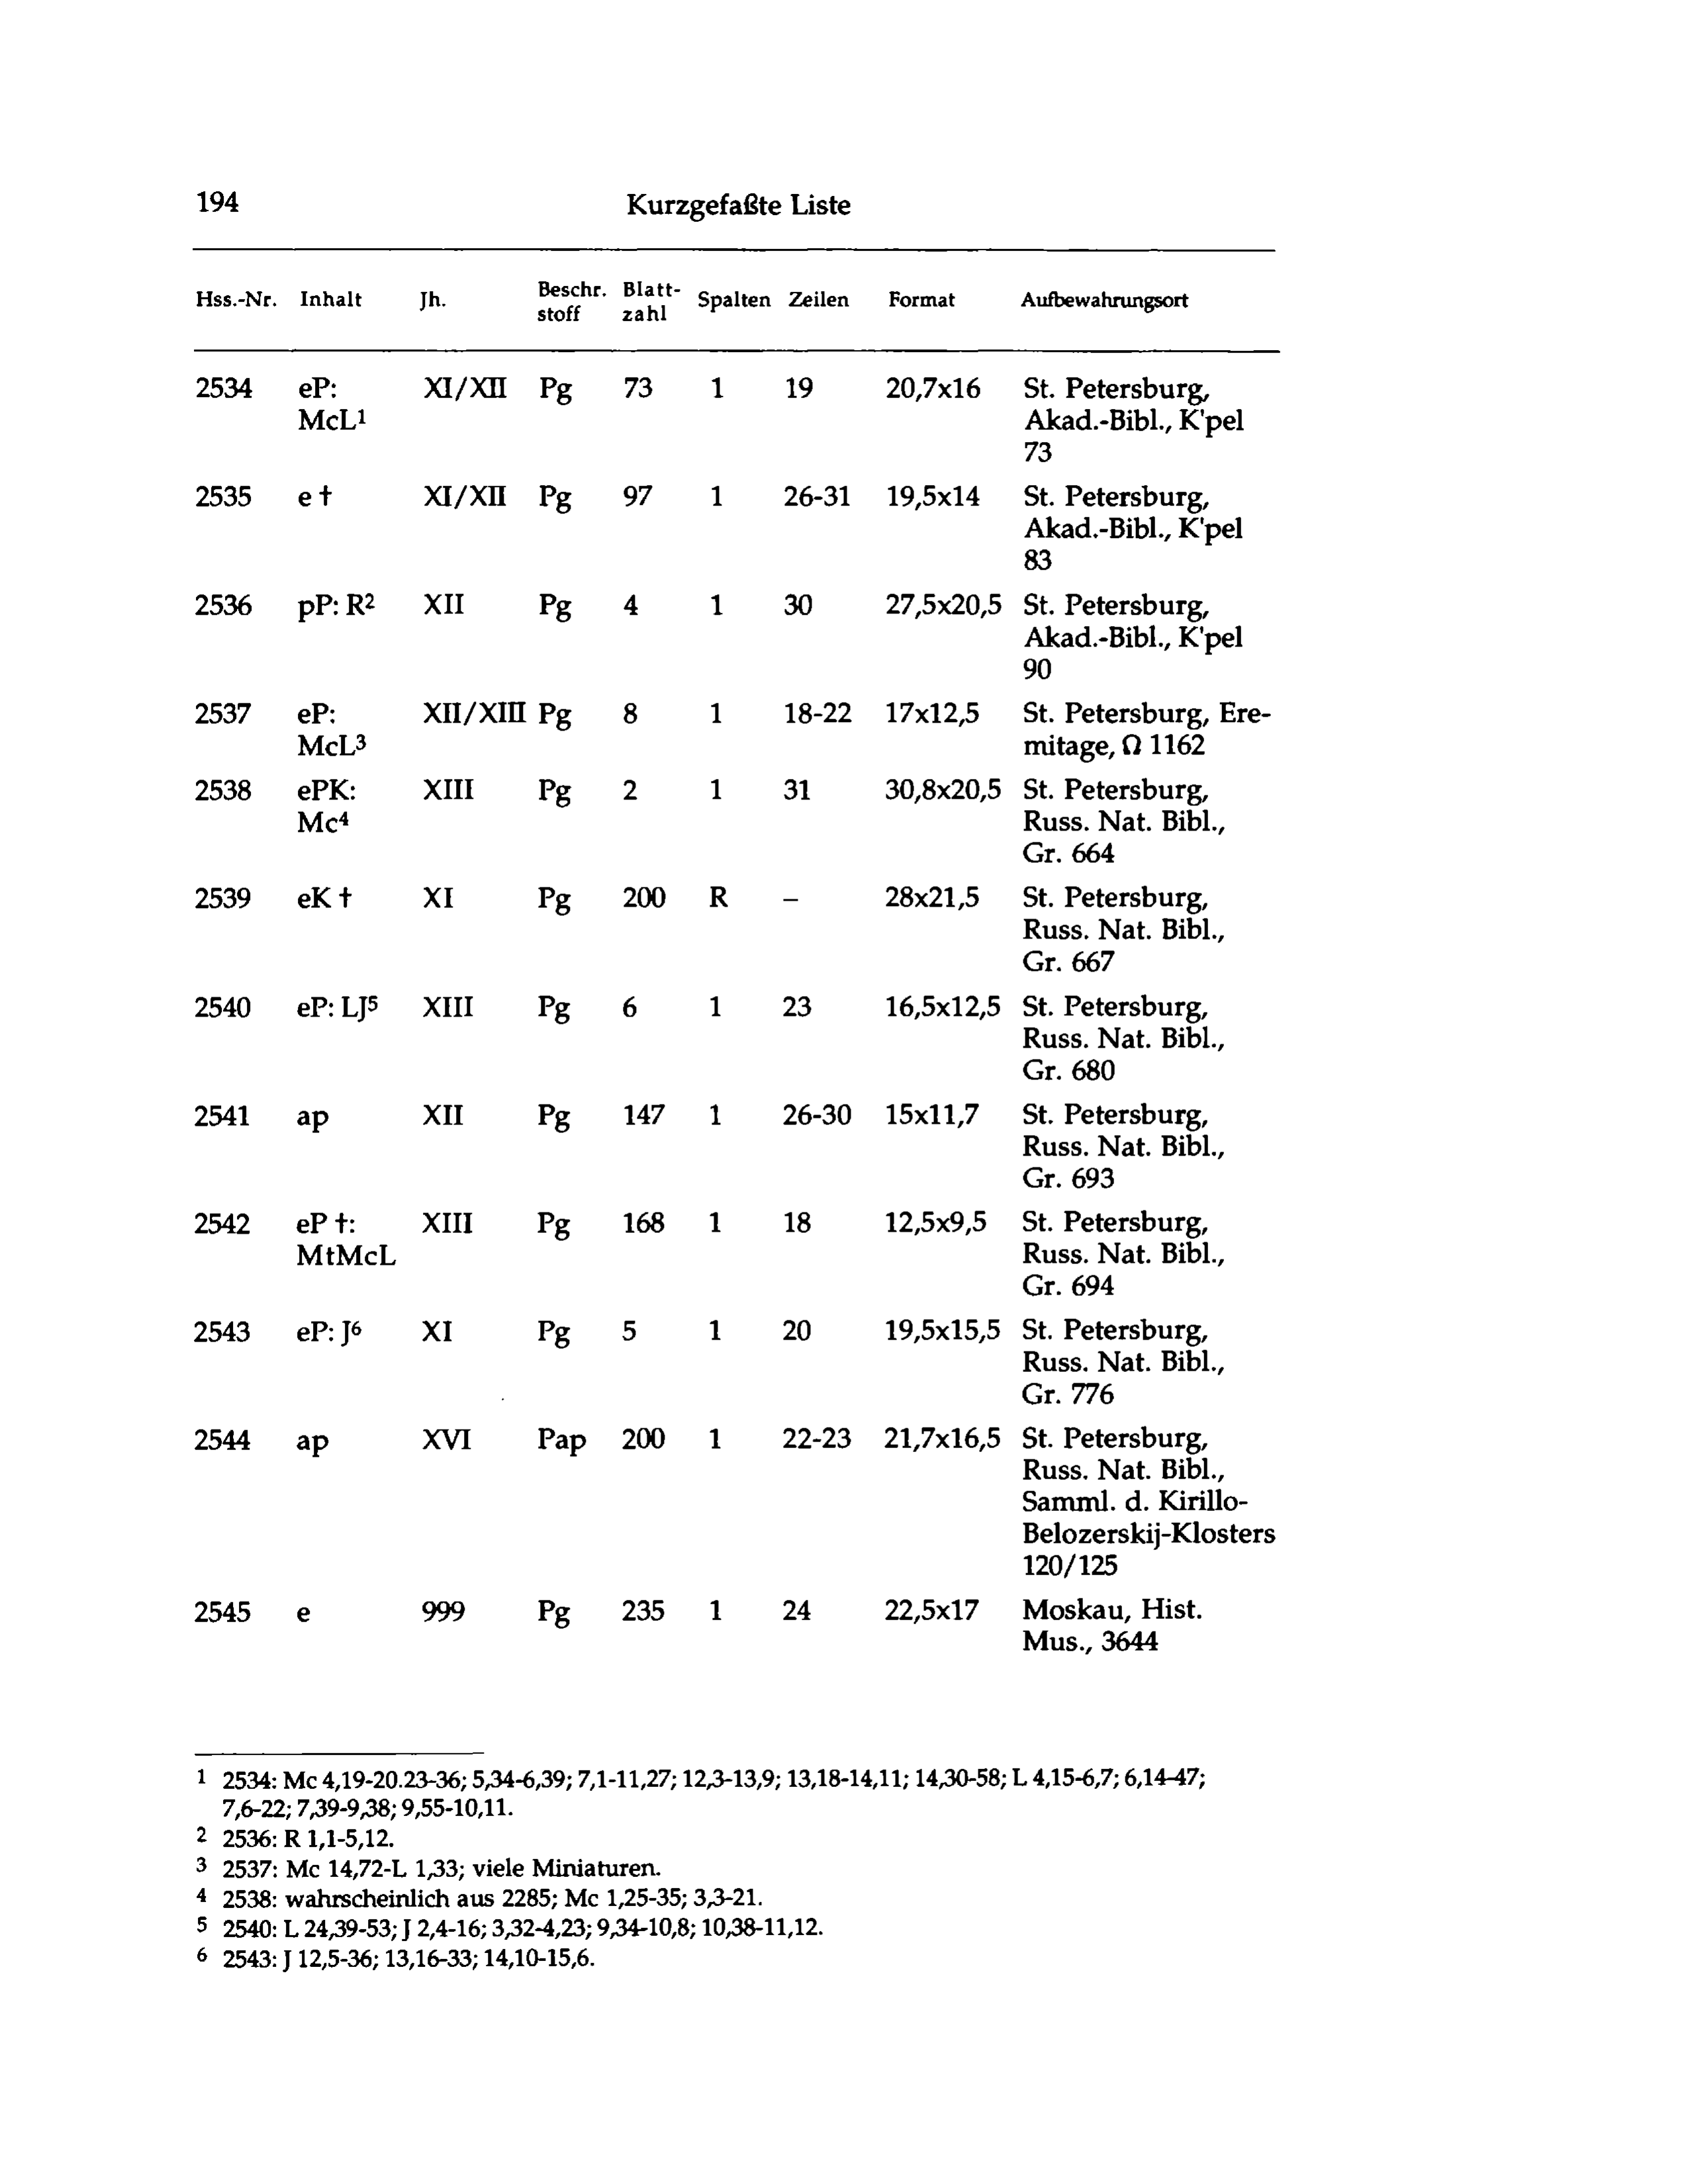 194 Kurzgefaßte Liste
Hss.-Nr. Inhalt Jh. Beschr. stoff Blatt- zahl Spalten Zeilen Format Aufbewahrungsort
2534 eP: XI/XII Pg 73 1 19 20,7x16 St. Petersburg,
McL¹ Akad.-Bibl., K'pel
73
2535 e † XI/XII Pg 97 1 26-31 19,5x14 St. Petersburg,
Akad.-Bibl., K'pel
83
2536 pP: R² XII Pg 4 1 30 27,5x20,5 St. Petersburg,
Akad.-Bibl., K'pel
90
2537 eP: XII/XIII Pg 8 1 18-22 17x12,5 St. Petersburg, Ere-
McL³ mitage, Ω 1162
2538 ePK: XIII Pg 2 1 31 30,8x20,5 St. Petersburg,
Mc⁴ Russ. Nat. Bibl.,
Gr. 664
2539 eK † XI Pg 200 R – 28x21,5 St. Petersburg,
Russ. Nat. Bibl.,
Gr. 667
2540 eP: LJ⁵ XIII Pg 6 1 23 16,5x12,5 St. Petersburg,
Russ. Nat. Bibl.,
Gr. 680
2541 ap XII Pg 147 1 26-30 15x11,7 St. Petersburg,
Russ. Nat. Bibl.,
Gr. 693
2542 eP †: XIII Pg 168 1 18 12,5x9,5 St. Petersburg,
MtMcL Russ. Nat. Bibl.,
Gr. 694
2543 eP: J⁶ XI Pg 5 1 20 19,5x15,5 St. Petersburg,
Russ. Nat. Bibl.,
Gr. 776
2544 ap XVI Pap 200 1 22-23 21,7x16,5 St. Petersburg,
Russ. Nat. Bibl.,
Samml. d. Kirillo-
Belozerskij-Klosters
120/125
2545 e 999 Pg 235 1 24 22,5x17 Moskau, Hist.
Mus., 3644
¹ 2534: Mc 4,19-20.23-36; 5,34-6,39; 7,1-11,27; 12,3-13,9; 13,18-14,11; 14,30-58; L 4,15-6,7; 6,14-47;
7,6-22; 7,39-9,38; 9,55-10,11.
² 2536: R 1,1-5,12.
³ 2537: Mc 14,72-L 1,33; viele Miniaturen.
⁴ 2538: wahrscheinlich aus 2285; Mc 1,25-35; 3,3-21.
⁵ 2540: L 24,39-53; J 2,4-16; 3,32-4,23; 9,34-10,8; 10,38-11,12.
⁶ 2543: J 12,5-36; 13,16-33; 14,10-15,6.